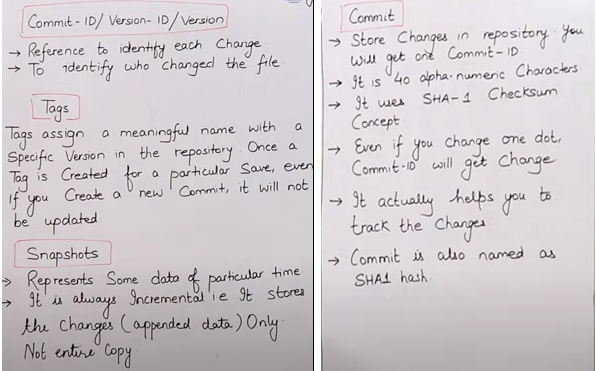 Commit - ID/ Version- ID/ Version
→ Reference to identify each Change
→ To identify who changed the file.
Tags
Tags assign a meaningful name with a
Specific Version in the repository. Once a
Tag is Created for a particular Save, even
if you Create a new Commit, it will not
be updated
Snapshots
→ Represents Some data of particular time
→ It is always Incremental i.e It stores
the Changes (appended data) Only.
Not entire Copy.
Commit
→ Store Changes in repository. You
will get one Commit-ID.
→ It is 40 alpha-numeric Characters.
→ It uses SHA-1 Checksum
Concept.
→ Even if you change one dot,
Commit-ID will get Change
→ It actually helps you to
track the Changes.
→ Commit is also named as
SHA1 hash.